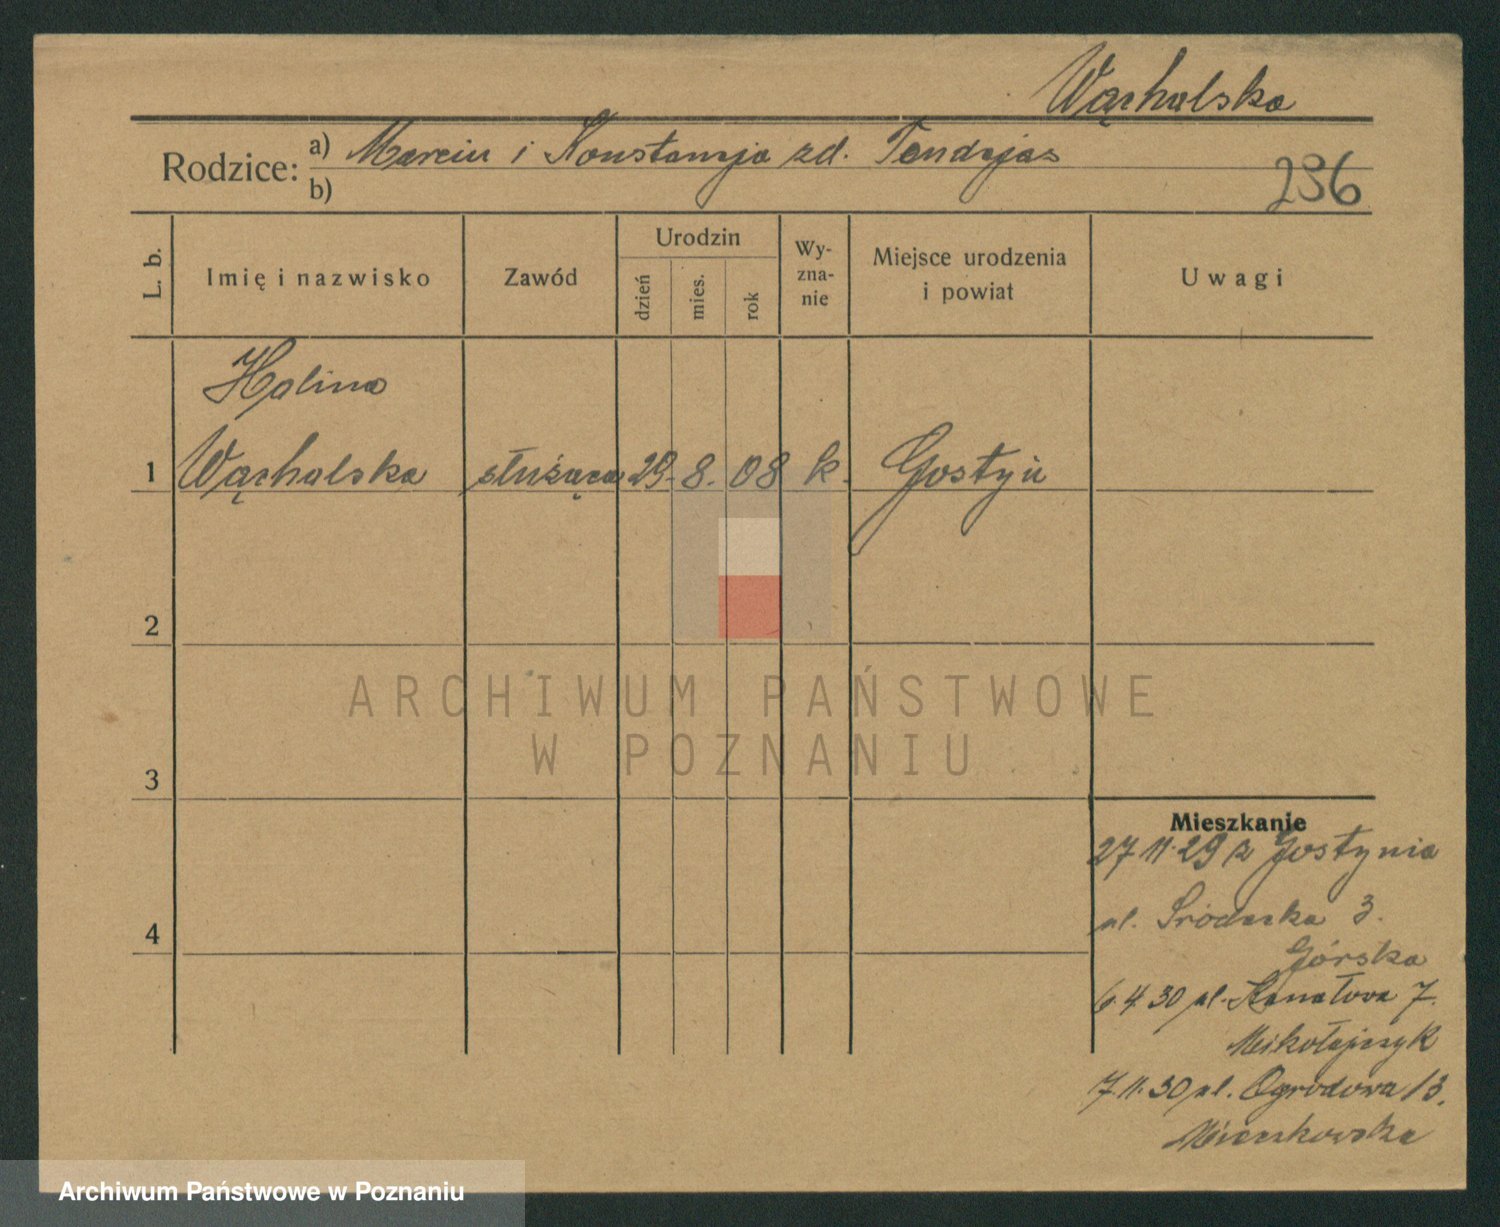 Wąchalska
Rodzice: a) Marcin i Konstancja zd. Tendajas
b)
236
L. b.
Imię i nazwisko
Zawód
Urodzin
dzień
mies.
rok
Wy-
zna-
nie
Miejsce urodzenia
i powiat
Uwagi
Halina
1 Wąchalska służąca 29. 8. 08 k. Gostyń
2
ARCHIWUM PAŃSTWOWE
W POZNANIU
3
Mieszkanie
27.11.29 z Gostynia
ul. Śródecka 3.
Górska
4
6.4.30 ul. Kanałowa 7.
Mikołajczyk
7.11.30 ul. Ogrodowa 13.
Mieczkowska
Archiwum Państwowe w Poznaniu